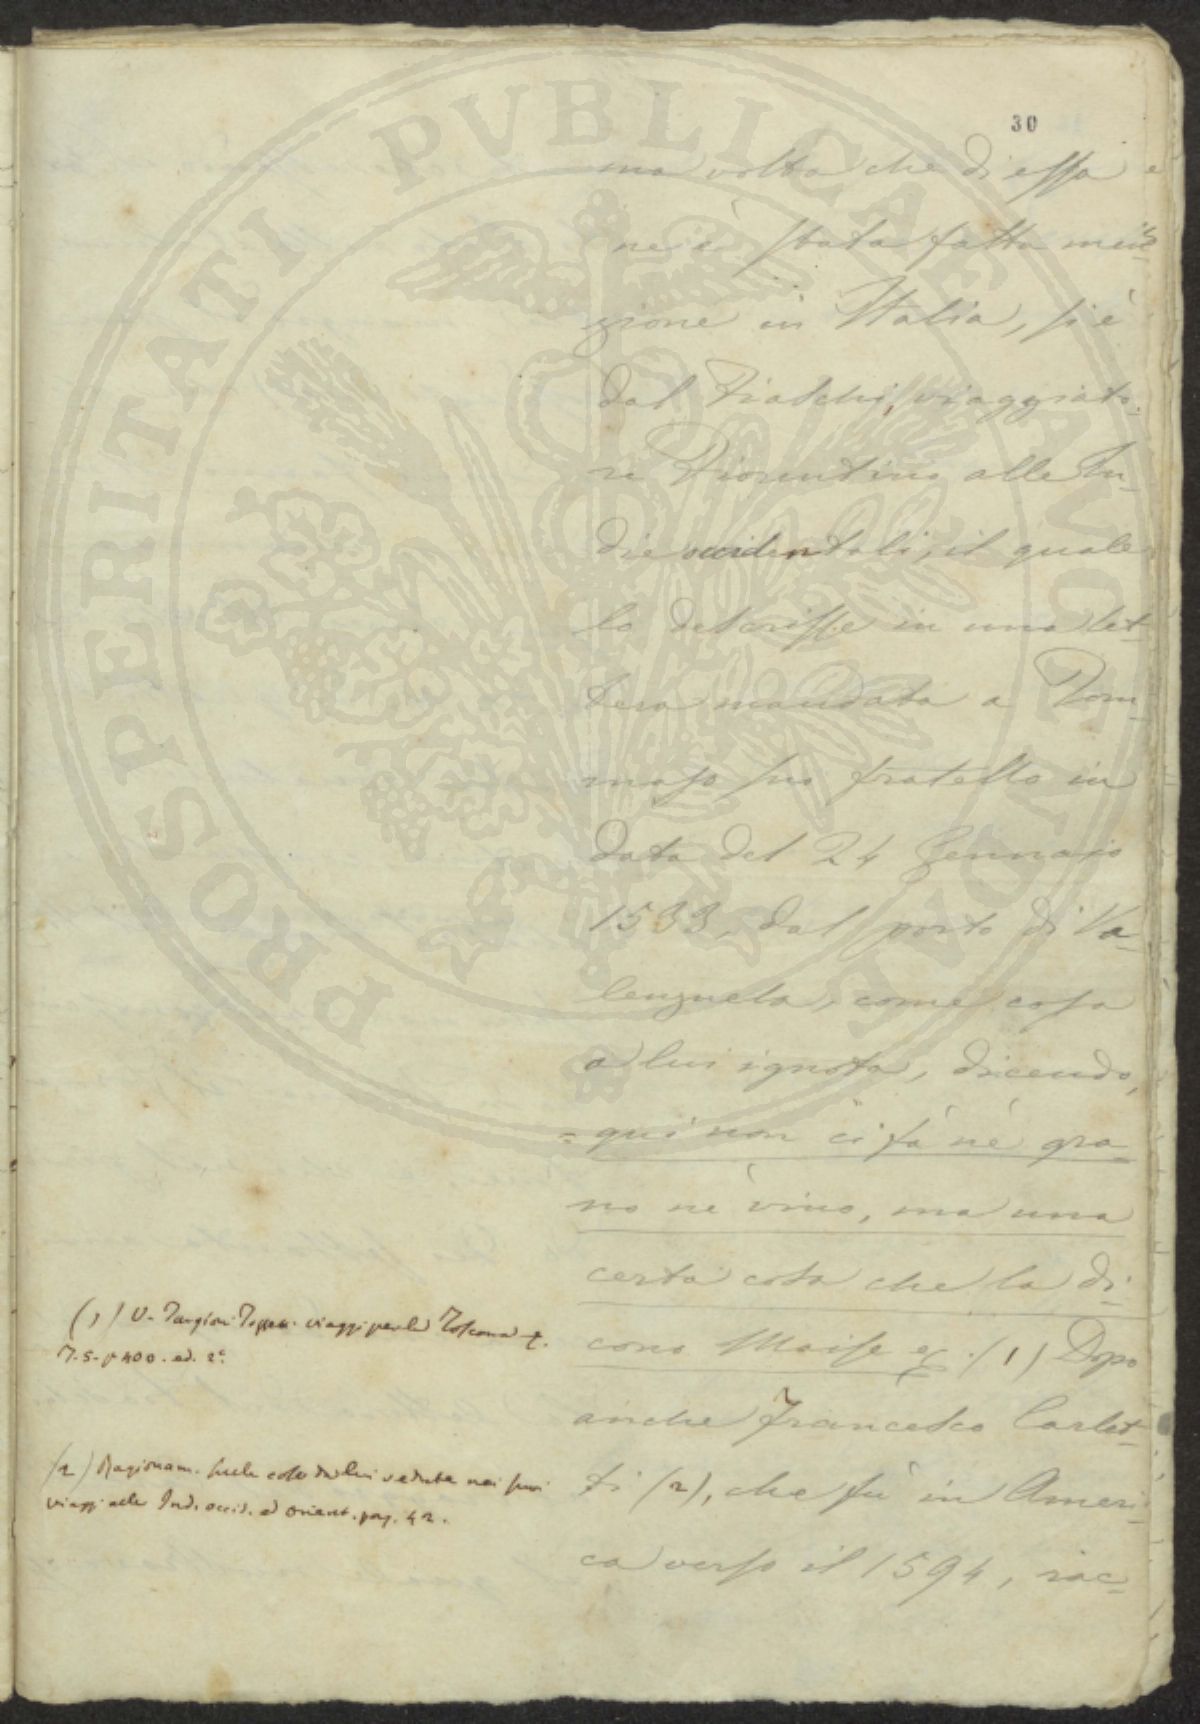 30
ma volta che di essa e
ne è stata fatta men-
zione in Italia, si è
dal Fraschi, viaggiato-
re Fiorentino alle In-
die occidentali, il quale
lo descrisse in una let-
tera mandata a Tom-
maso suo fratello in
data del 24 Gennaio
1533, dal porto di Va-
lenzuela, come cosa
a lui ignota, dicendo,
= qui non ci fà nè gra-
no nè vino, ma una
certa cosa che la di-
cono Maise (1) Dopo
anche Francesco Carlet-
ti (2), che fù in Ameri-
ca verso il 1594, rac-
(1) V. Targioni viaggi per la Toscana t.
T. 5. p 400. ed. 2ª
(2) Ragionam. sulle cose da lui vedute nei suoi
viaggi alle Ind. occid. ed orient. pag. 42.
PROSPERITATI PVBLICAE AVGENDAE